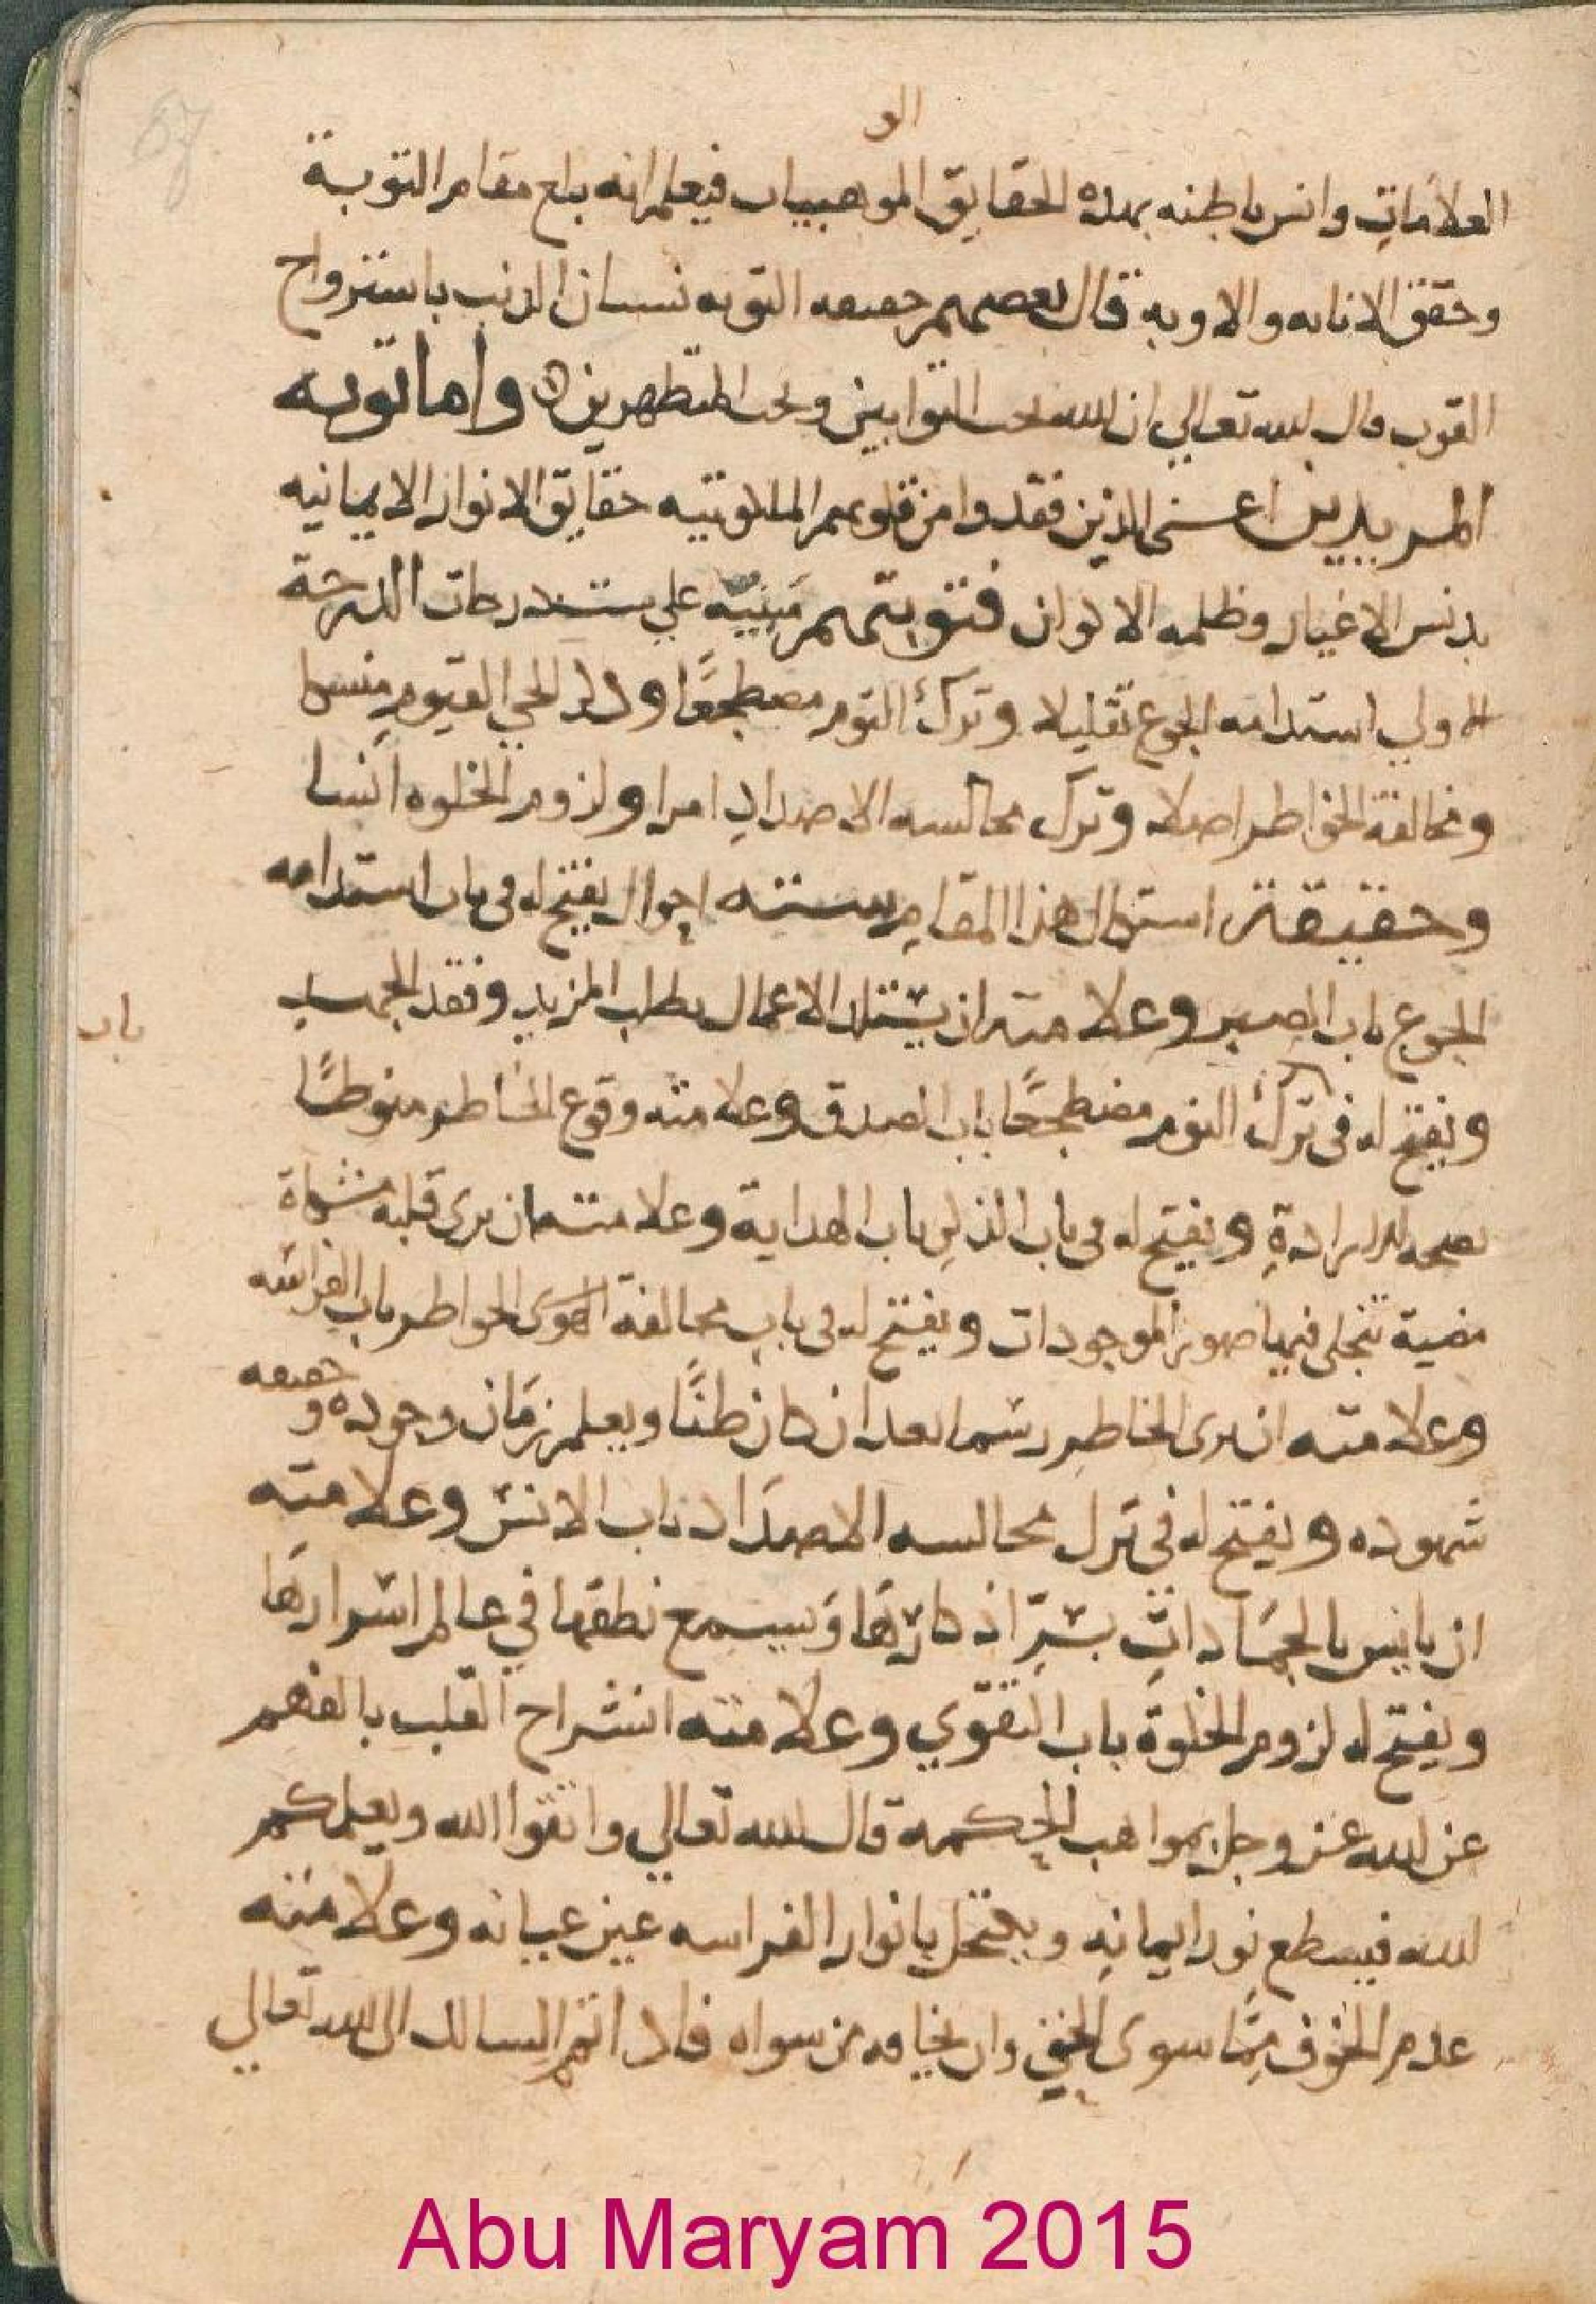 الو
العلامات وانس باطنه بهذه الحقايق الموهبيات فيعلم انه بلغ مقام التوبة
وحقق الانابه والاوبه قال بعضهم حقيقه التوبه نسيان الذنب باستزواح
القرب قال الله تعالي ان الله يحب التوابين ويحب المتطهرين واما توبه
المريدين اعني الذين فقدوا من قلوبهم الملكوتيه حقايق الانوار الايمانيه
بدنس الاغيار وظلمه الاكوان فتوبتهم مبنية علي ست درجات الدرجة
الاولي استدامه الجوع تقليلا وترك النوم مضطجعا وذكر الحي القيوم
ومخالفة الخواطر اصلا وترك مجالسه الاضداد امرا ولزوم الخلوه انسا
وحقيقة استكمال هذا المقام ستته احوال يفتح له في باب استدامه
الجوع باب الصبر وعلامته ان يستلذ الاعمال بطلب المزيد وفقد الجسد
باب
ويفتح له في ترك النوم مضطجعا باب الصدق وعلامته وقوع الخاطر منوطا
بصحه الارادة ويفتح له في باب الذكر باب الهداية وعلامته ان يرى قلبه مشكاة
مضية تتجلى فيها صور الموجودات ويفتح له في باب مخالفة الهوى الخواطر باب الفراسه
وعلامته ان يرى الخاطر رسما بعد ان كان ظنا ويعلم زمان وجوده و حقيقه
شهوده ويفتح له في ترك مجالسه الاضداد باب الانس وعلامته
ان يانس بالجمادات بسر اذكارها ويسمع نطقها في عالم اسرارها
ويفتح له لزوم الخلوة باب التقوي وعلامته انشراح القلب بالفهم
عن الله عز وجل بمواهب الحكمه قال الله تعالي واتقوا الله ويعلمكم
الله فيسطع نور ايمانه ويكتحل بانوار الفراسه عين عيانه وعلامته
عدم الخوف مما سوى الحق وان يخافه من سواه فاذا اتم السالك الى الله تعالي
Abu Maryam 2015